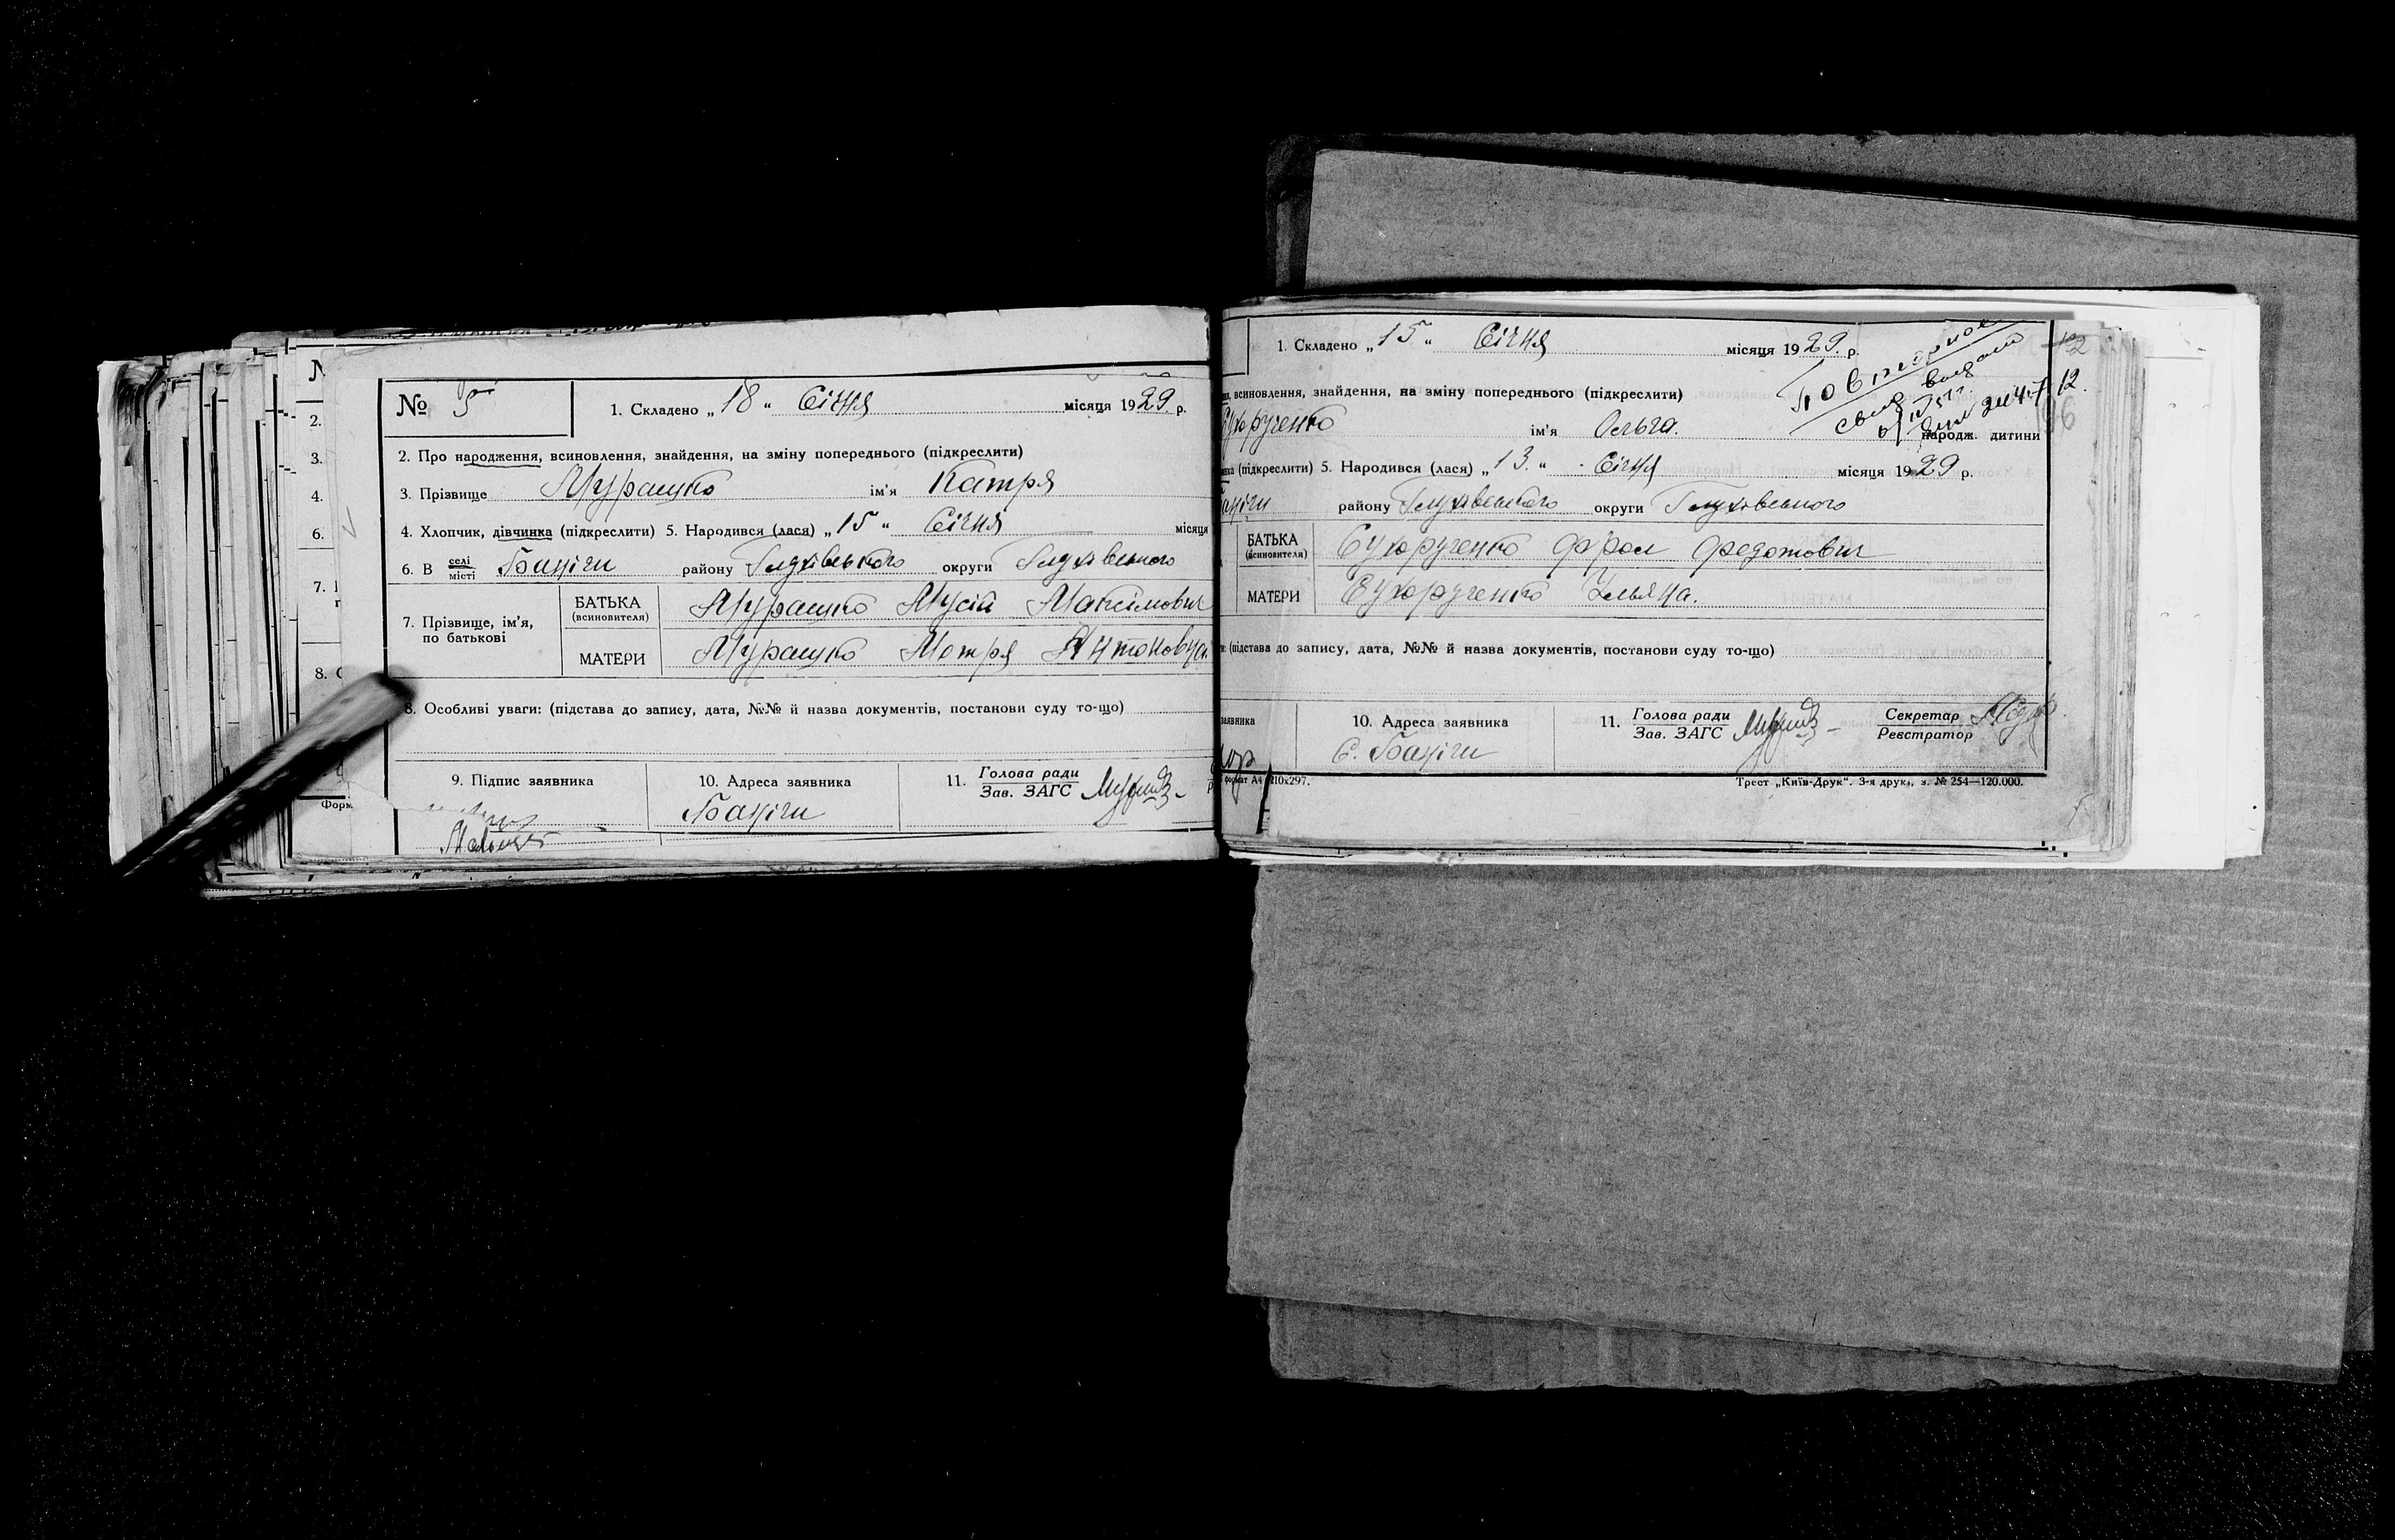 № 5
1. Складено „18“ Січня місяця 1929 р.
2. Про народження, всиновлення, знайдення, на зміну попереднього (підкреслити)
3. Прізвище Мурашко ім'я Катря
4. Хлопчик, дівчинка (підкреслити) 5. Народився (лася) „15“ Січня місяця
6. В селі місті Баничи району Глухівського округи Глухівського
7. Прізвище, ім'я, по батькові
БАТЬКА (всиновителя) Мурашко Мусій Максімович
МАТЕРИ Мурашко Мотря Антоновна
8. Особливі уваги: (підстава до запису, дата, №№ й назва документів, постанови суду то-що)
9. Підпис заявника
10. Адреса заявника
Баничи
11. Голова ради
Зав. ЗАГС
2.
3.
4.
6.
7.
8.
Форм
1. Складено „15“ Січня місяця 1929. р.
Повторное
всиновлення, знайдення, на зміну попереднього (підкреслити)
Сухорученко ім'я Ольга. народж. дитини
(підкреслити) 5. Народився (лася) „13.“ Січня місяця 1929 р.
району Глухівського округи Глухівського
БАТЬКА (всиновителя) Сухорученко Фрол Федотович
МАТЕРИ Сухорученко Ульяна.
(підстава до запису, дата, №№ й назва документів, постанови суду то-що)
заявника
10. Адреса заявника
С. Баничи
11. Голова ради
Зав. ЗАГС
Секретар
Реєстратор
формат А4 210х297.
Трест „Київ-Друк“. 3-я друк., з. № 254—120.000.